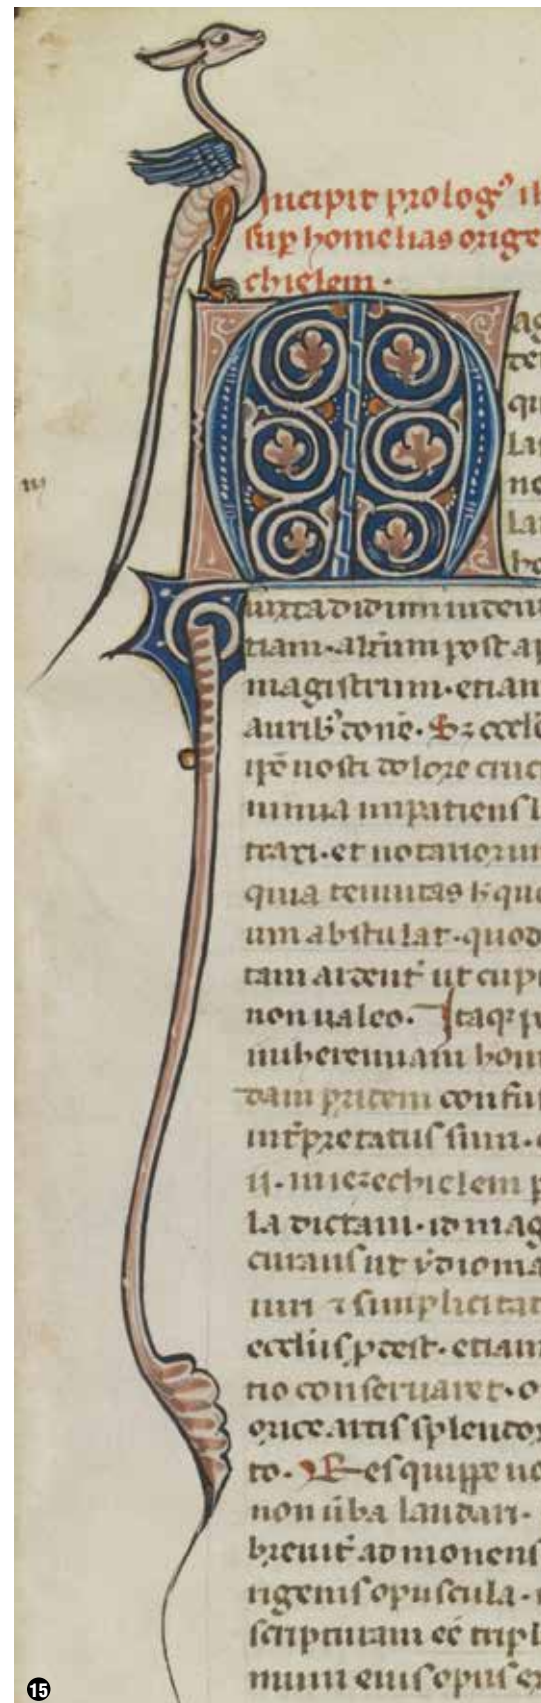 Incipit prolog' 
sup homelias orige
chielem.
M
ag
te
qu
La
no
La
ho
iuxta didimi uiden
tiam. altum post ap
magistrum. etiam
aurib' done. S; 
ipe nosti dolore cruc
nimia impatiens l
traxi. et notariorum
quia tenuitas h que
um abstulat. quod
tam ardent ut cupi
non ualeo. Itaq; p
in iheremiam hom
dam pridem confu
intpretatus sum.
ii. in iezechielem p
la dictaui. id mag
curans ut ydioma
uiri 7 simplicitat
eccliis pdest. etiam
tio conseruaret. o
orice artis splendor
to. Res quippe no
non uba laudari.
breuit admonens
rigenis opuscula.
scripturam ee tripl
mum eius opus ex
15